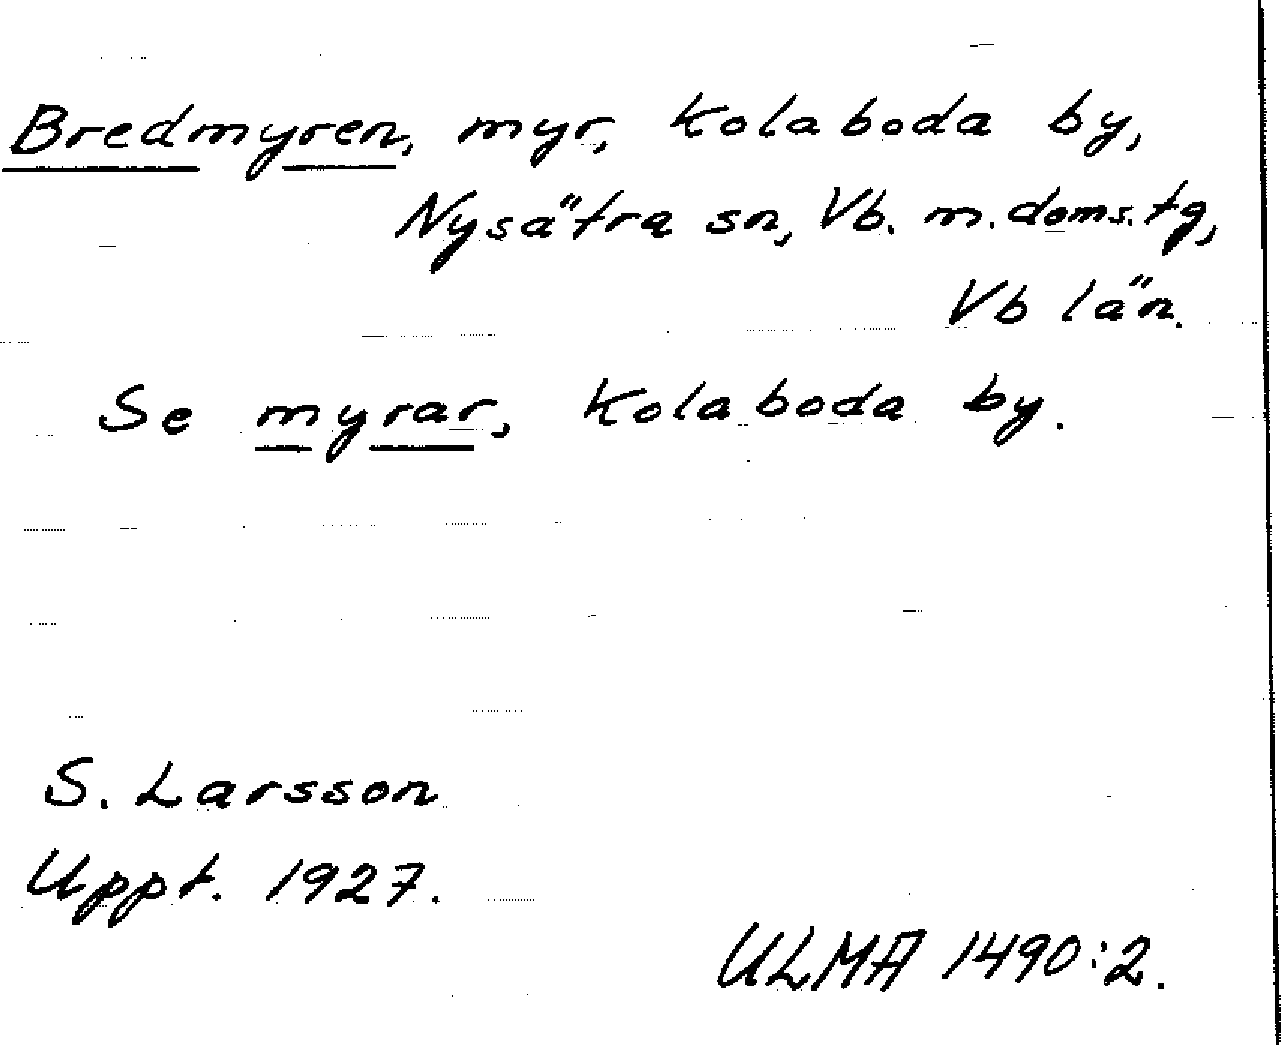 Bredmyren, myr, Kolaboda by,
Nysätra sn, Vb. m. doms. tg,
Vb län.
Se myrar, Kolaboda by.
S. Larsson
Uppt. 1927.
ULMA 1490:2.